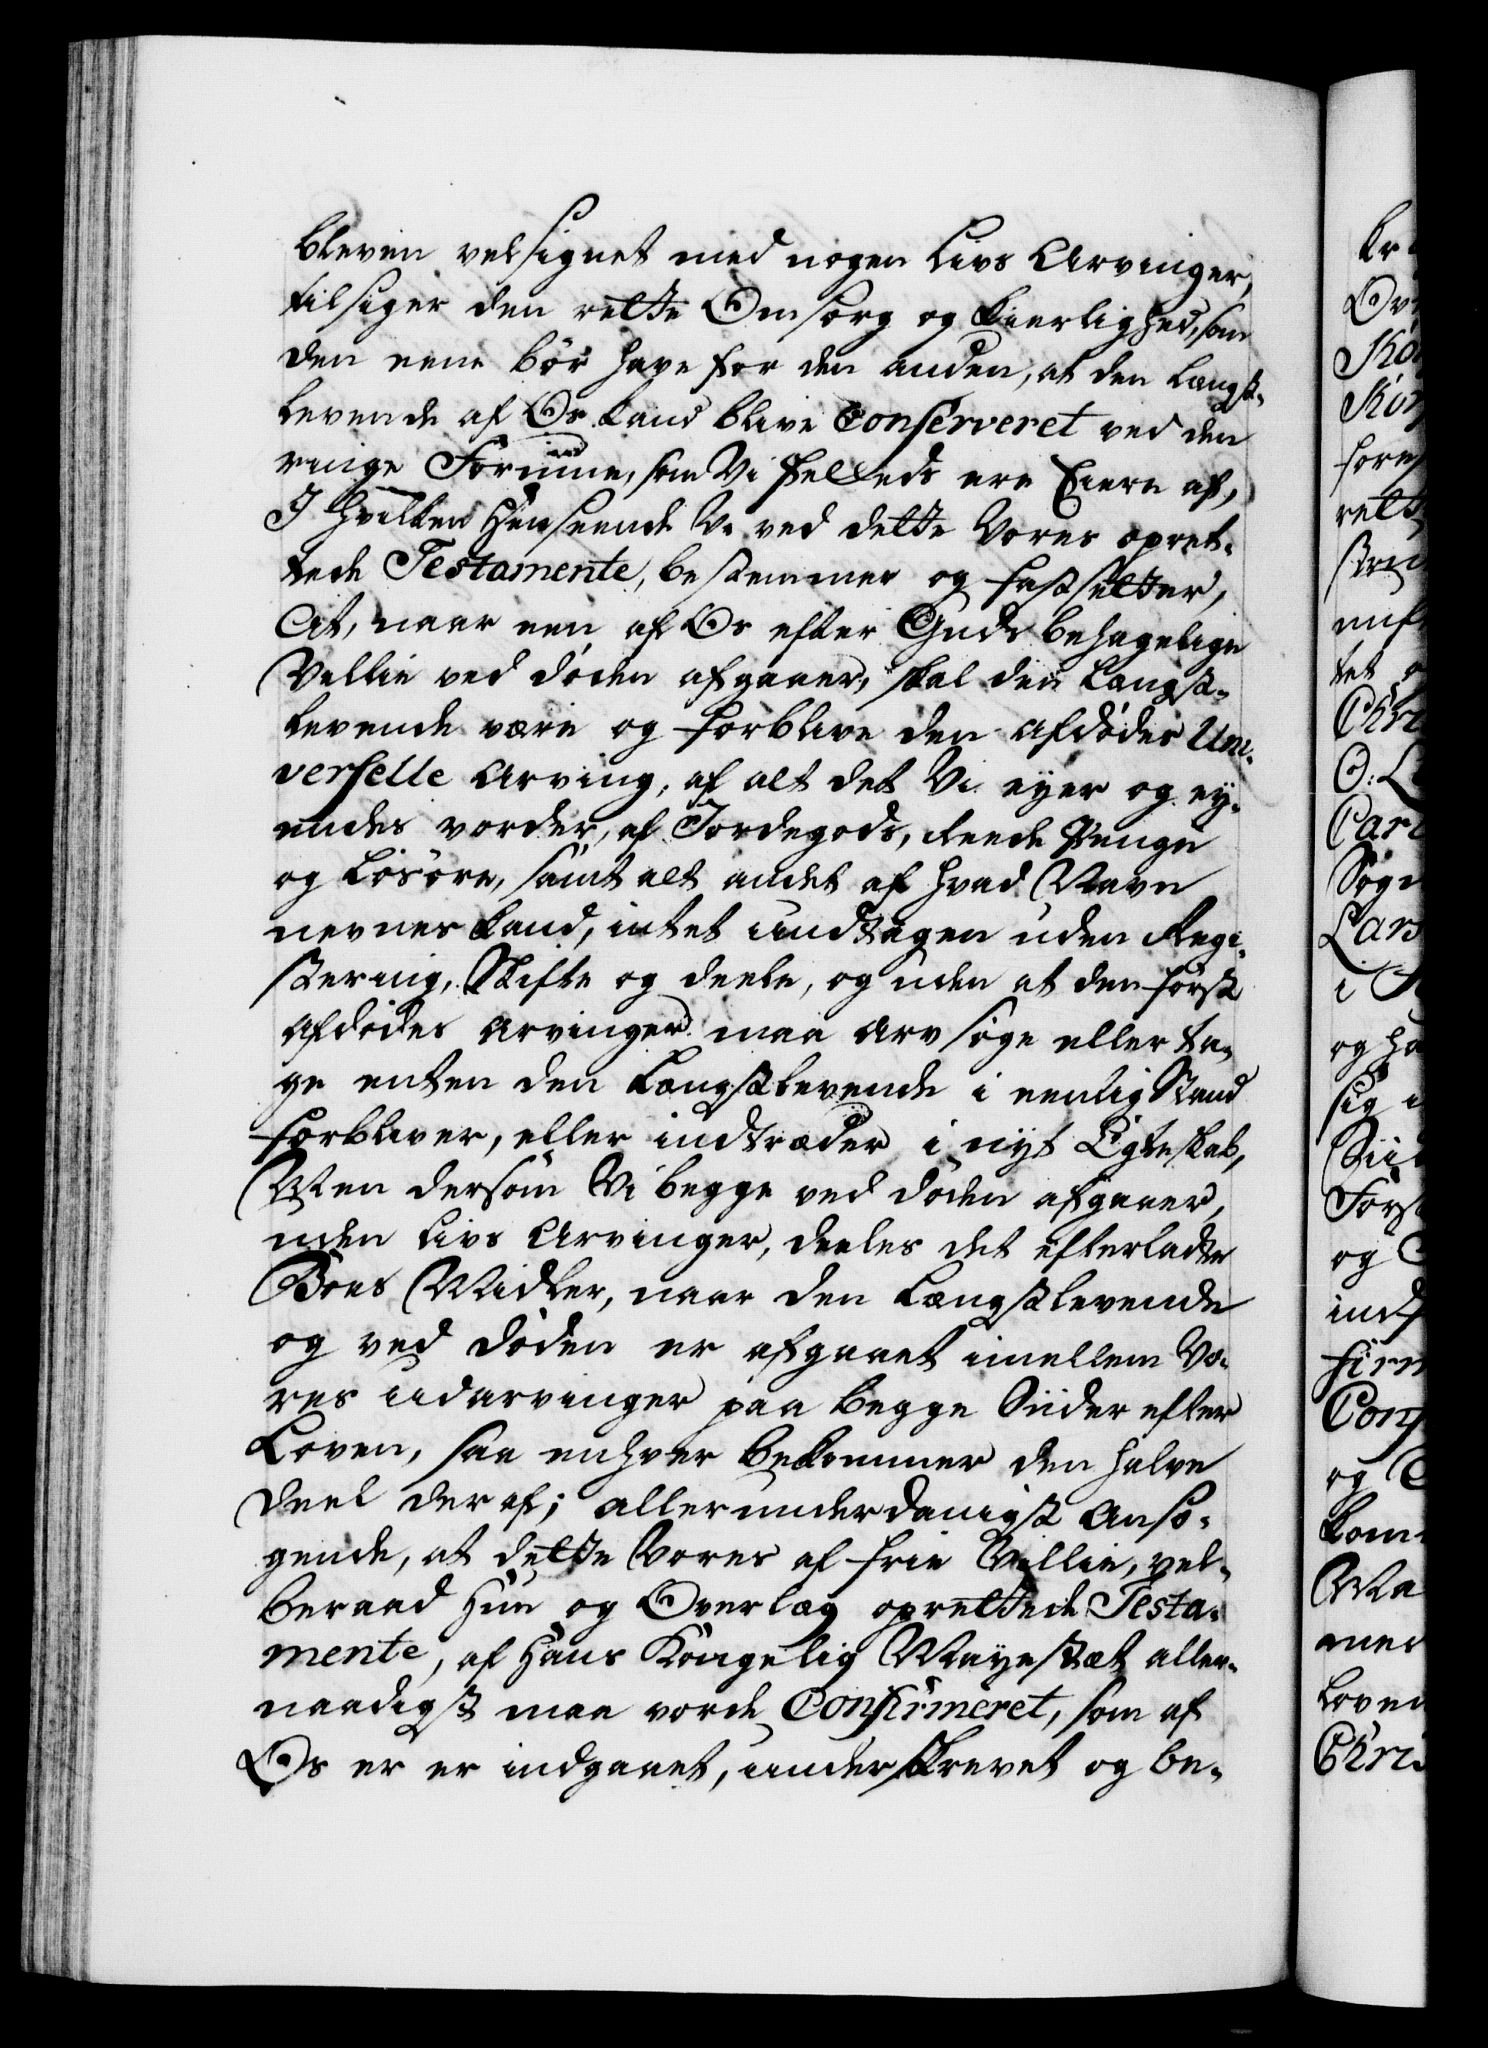 bleven velsignet med nogen Livs Arvinger,
tilsiger den rette Omsorg og Kierlighed, som
den eene bör have for den anden, at den længst-
levende af Os kand blive Conserveret ved den
ringe Formue, som Vi fælleds ere Eiere af,
I hvilken Henseende Vi ved dette Vores opret-
tede Testamente, bestemmer og fastsetter,
At, naar een af Os efter Guds behagelige
Villie ved döden afgaaer, skal den Længst-
levende være og forblive den afdödes Uni-
verselle Arving, af alt det Vi eyer og ey-
endes vorder, af Jordegods, reede Penge
og Lösöre, samt alt andet af hvad Navn
nevnes kand, intet undtagen uden Regi-
stering, Skifte og deele, og uden at den först
afdödes Arvinger maa Arv söge eller ta-
ge enten den Længstlevende i eenlig Stand
forbliver, eller indtræder i nyt Egteskab,
Men dersom Vi begge ved döden afgaaer,
uden Livs Arvinger, deeles det efterladte
Boes Midler, naar den Længstlevende
og ved Döden er afgaaet imellem Vo-
res udarvinger paa begge Siider efter
Loven, saa enhver bekommer den halve
Deel deraf; allerunderdanigst Ansö-
gende, at dette Vores af frie Villie, vel-
beraad Hu og Overlæg oprettede Testa-
mente, af Hans Kongelig Mayestæt aller-
naadigst maa vorde Confirmeret, som af
Os er er indgaaet, underskrevet og be-